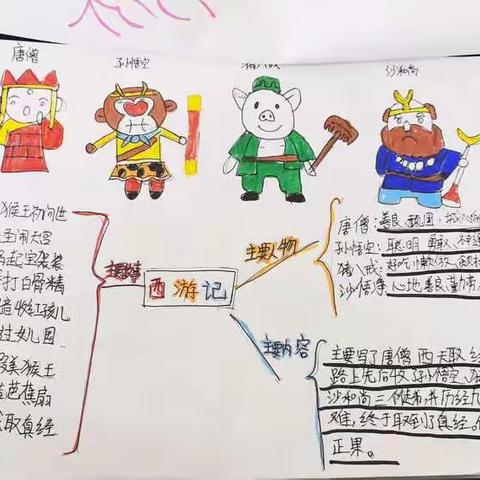 唐僧
孙悟空
猪八戒
沙和尚
猴王初问世
闹天宫
起宝袈裟
打白骨精
收红孩儿
女儿国
美猴王
芭蕉扇
取真经
主要故事
西游记
主要人物
唐僧：善良 顽固，
孙悟空：聪明 勇敢 神通
猪八戒：好吃懒做
沙悟净：心地善良
主要内容
主要写了唐僧西天取经
路上先后收了孙悟空、
沙和尚三个徒弟并历经九
难，终于取到了真经。
正果。